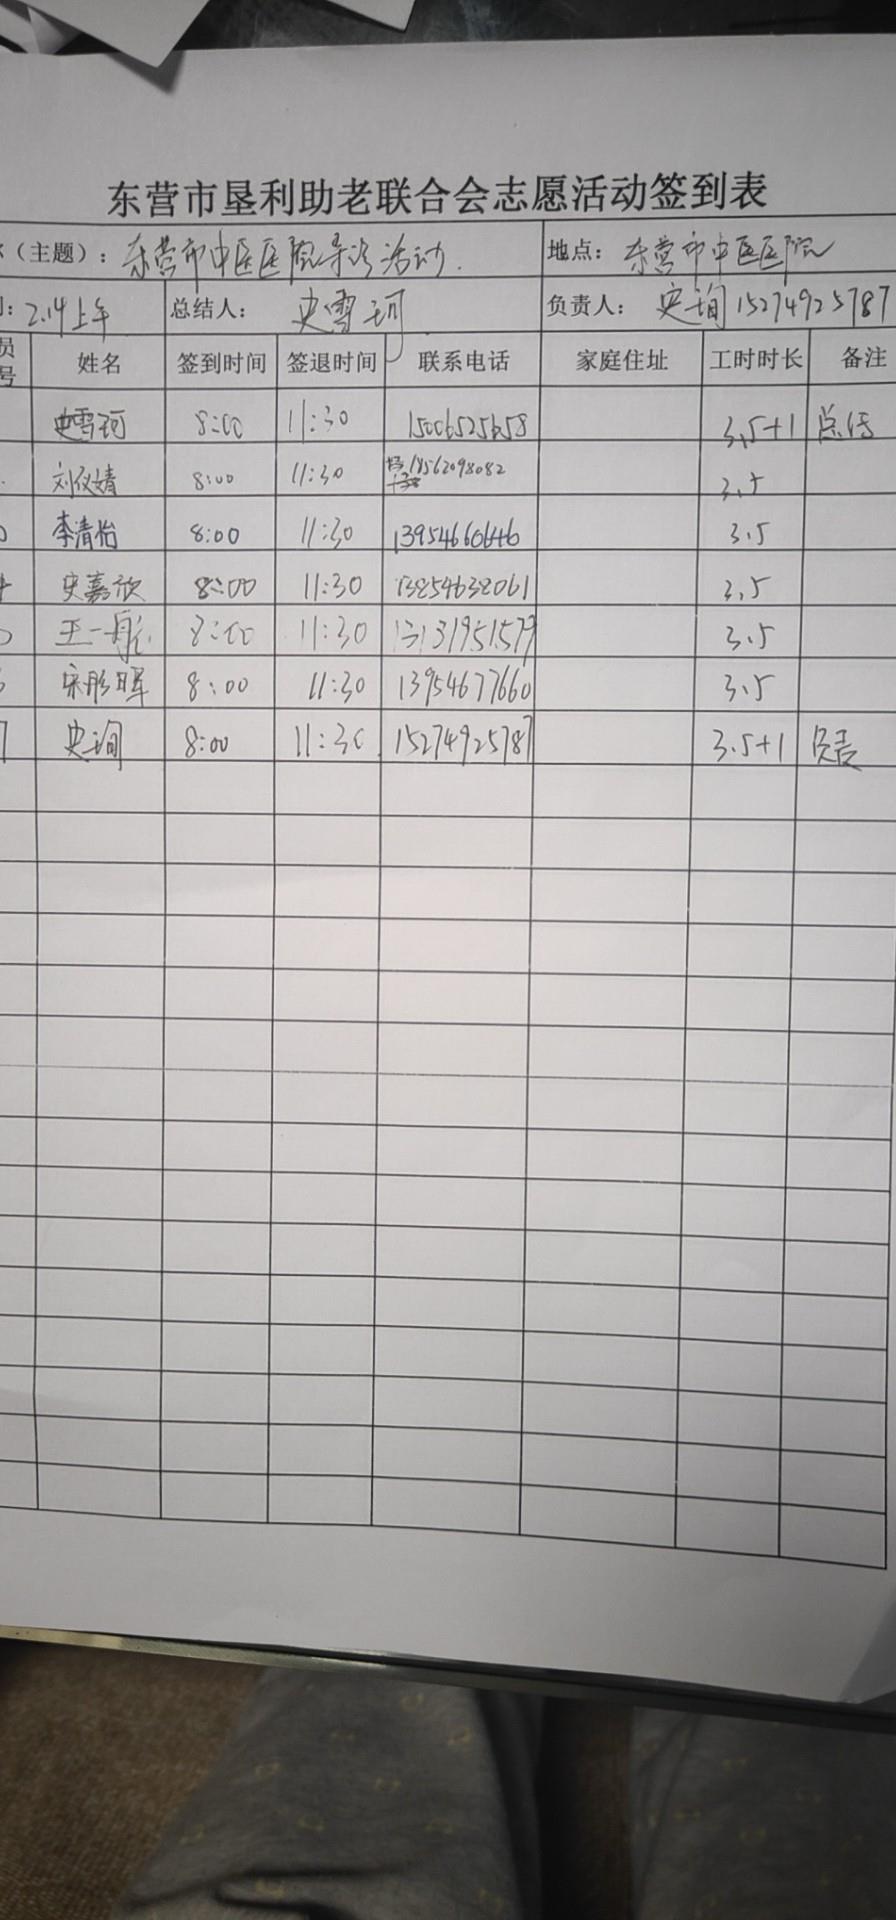 东营市垦利助老联合会志愿活动签到表
（主题）： 东营市中医医院导诊活动. 地点： 东营市中医医院
: 2.14上午 总结人： 史雪珂 负责人： 史珣 15274925787
员号 姓名 签到时间 签退时间 联系电话 家庭住址 工时时长 备注
史雪珂 8:00 11:30 3.5+1 总结
刘仪婧 8:00 11:30 18562098082 3.5
李清怡 8:00 11:30 13954660646 3.5
史嘉欣 8:00 11:30 13854632061 3.5
王一航 8:00 11:30 13131951579 3.5
宋彤晖 8:00 11:30 13954677660 3.5
7 史珣 8:00 11:30 15274925787 3.5+1 负责